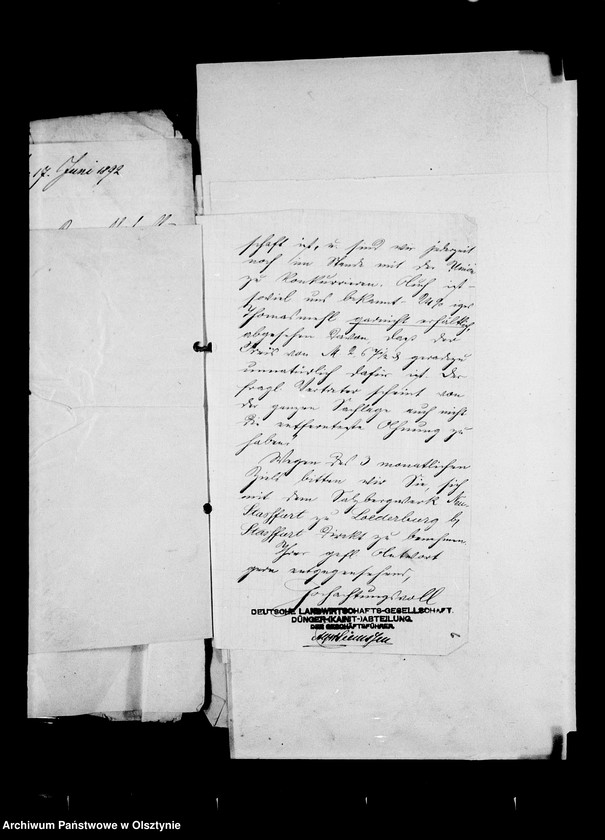 17. Juni 1892
schaft ist, u. sind wir jederzeit
noch im Stande mit der Union
zu konkurrieren. Auch ist
soviel uns bekannt
Thomasmehl garnicht erhältlich,
abgesehen davon, daß der
Preis von M 2 67½ geradezu
unnatürlich dafür ist. Der
fragl. Vertreter scheint von
der ganzen Sachlage auch nicht
die entfernteste Ahnung zu
haben.
Wegen des 3 monatlichen
Ziels bitten wir Sie, sich
mit dem Salzbergwerk Neu-
Stassfurt zu Loederburg b/
Stassfurt direkt zu benehmen.
Ihrer gefl. Antwort
gern entgegensehend,
Hochachtungsvoll
DEUTSCHE LANDWIRTSCHAFTS-GESELLSCHAFT.
DÜNGER-(KAINIT-)ABTEILUNG.
DER GESCHÄFTSFÜHRER.
Archiwum Państwowe w Olsztynie